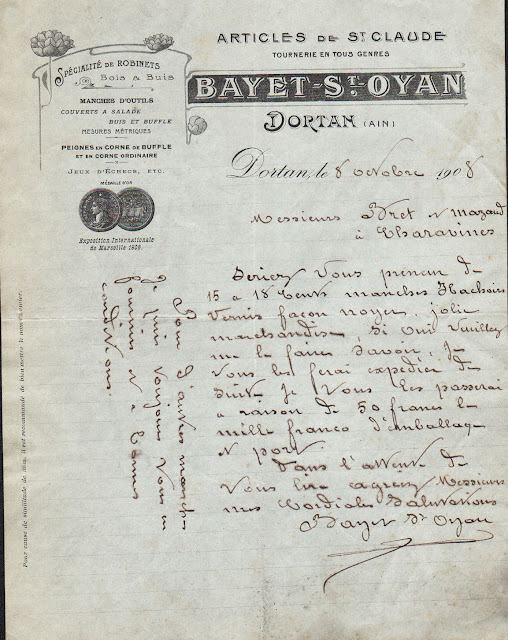 ARTICLES DE ST CLAUDE
TOURNERIE EN TOUS GENRES
BAYET-ST-OYAN
DORTAN (AIN)
SPÉCIALITÉ DE ROBINETS
Bois & Buis
MANCHES D'OUTILS
COUVERTS A SALADE
BUIS ET BUFFLE
MESURES MÉTRIQUES
PEIGNES EN CORNE DE BUFFLE
ET EN CORNE ORDINAIRE
JEUX D'ÉCHECS, ETC.
MÉDAILLE D'OR
Exposition Internationale
de Marseille
Dortan, le 8 octobre 1908
Messieurs Bret & Mazaud
à Charavines
Seriez Vous preneur de
15 a 18 Cents manches Hachoirs
Vernis façon noyer, jolie
marchandise, Si oui Veuillez
me le faire Savoir, je
Vous les ferai expédier de
Suite. Je Vous les passerai
a raison de 50 francs le
mille franco d'emballage
& port
Dans l'attente de
Vous lire agreez Messieurs
mes Cordiales Salutations
Bayet St Oyan
Pour d'autres manches
je suis toujours Vous en
fournir &
conditions
Pour cause de similitude de nom, il est recommandé de bien mettre le nom en entier.